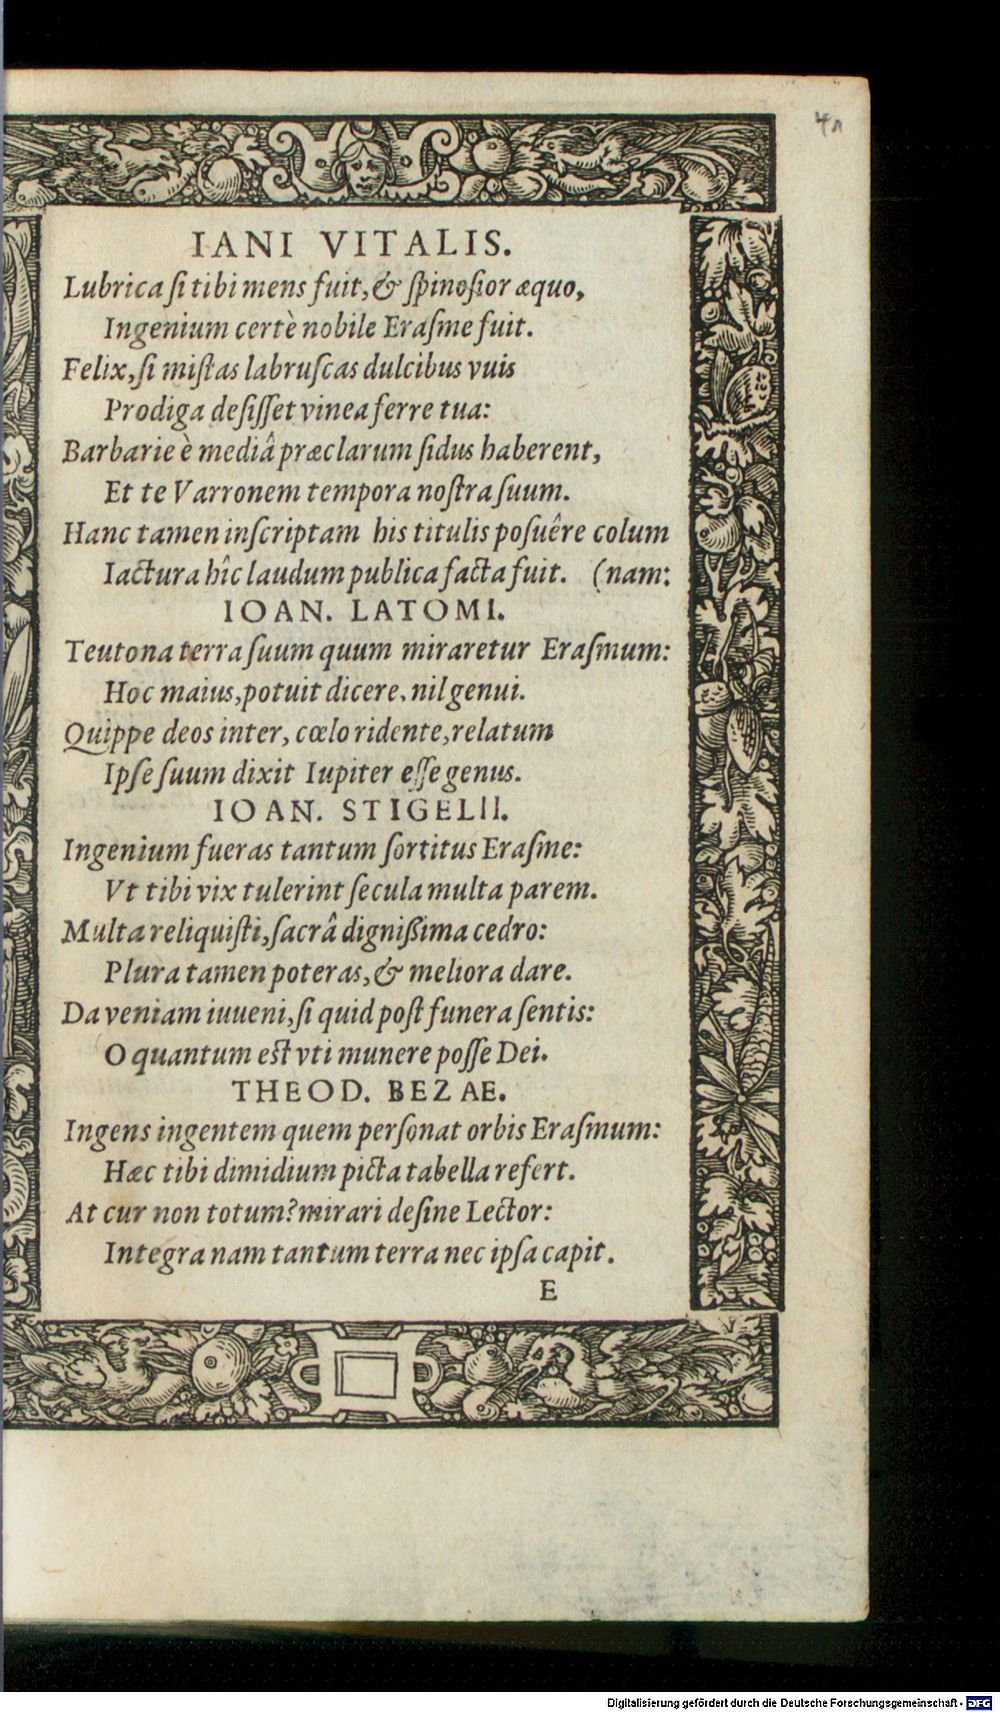 41
IANI VITALIS.
Lubrica ſi tibi mens fuit, & ſpinoſior æquo,
Ingenium certè nobile Eraſme fuit.
Felix, ſi miſtas labruſcas dulcibus vuis
Prodiga deſiſſet vinea ferre tua:
Barbarie è mediâ præclarum ſidus haberent,
Et te Varronem tempora noſtra ſuum.
Hanc tamen inſcriptam his titulis poſuêre colum
Iactura hîc laudum publica facta fuit. (nam:
IOAN. LATOMI.
Teutona terra ſuum quum miraretur Eraſmum:
Hoc maius, potuit dicere, nil genui.
Quippe deos inter, cœlo ridente, relatum
Ipſe ſuum dixit Iupiter eſſe genus.
IOAN. STIGELII.
Ingenium fueras tantum ſortitus Eraſme:
Vt tibi vix tulerint ſecula multa parem.
Multa reliquiſti, ſacrâ digniſſima cedro:
Plura tamen poteras, & meliora dare.
Da veniam iuueni, ſi quid poſt funera ſentis:
O quantum eſt vti munere poſſe Dei.
THEOD. BEZAE.
Ingens ingentem quem perſonat orbis Eraſmum:
Hæc tibi dimidium picta tabella refert.
At cur non totum? mirari deſine Lector:
Integra nam tantum terra nec ipſa capit.
E
Digitalisierung gefördert durch die Deutsche Forschungsgemeinschaft - DFG